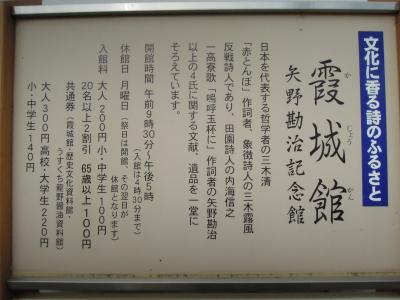 文化に香る詩のふるさと
霞城館
か
じょう
かん
矢野勘治記念館
日本を代表する哲学者の三木清
「赤とんぼ」作詞者、象徴詩人の三木露風
反戦詩人であり、田園詩人の内海信之
一高寮歌「嗚呼玉杯に」作詞者の矢野勘治
以上の4氏に関する文献、遺品を一堂に
そろえています。
開館時間 午前9時30分~午後5時
(入館は4時30分まで)
休館日 月曜日(祭日は開館、その翌日が
休館となります)
入館料 大人 200円 小・中学生 100円
20名以上2割引 65歳以上100円
共通券(霞城館・歴史文化資料館・
うすくち龍野醤油資料館)
大人300円 高校・大学生220円
小・中学生140円